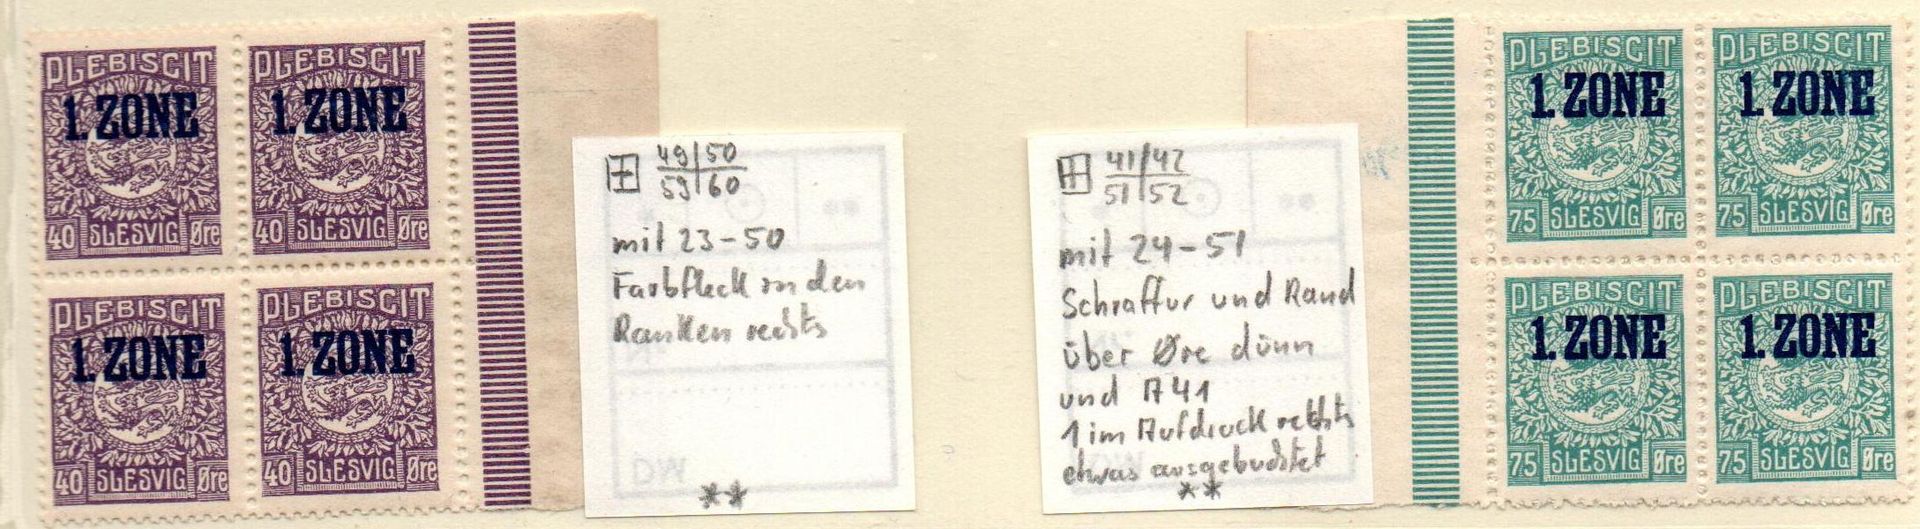 PLEBISCIT PLEBISCIT
1. ZONE 1. ZONE
40 SLESVIG Øre 40 SLESVIG Øre
PLEBISCIT PLEBISCIT
1. ZONE 1. ZONE
40 SLESVIG Øre 40 SLESVIG Øre
49/50
59/60
mit 23-50
Farbfleck in den
Ranken rechts
DW
**
41/42
51/52
mit 24-51
Schraffur und Rand
über Øre dünn
und A 41
1 im Aufdruck rechts
etwas ausgebuchtet
DW
**
PLEBISCIT PLEBISCIT
1. ZONE 1. ZONE
75 SLESVIG Øre 75 SLESVIG Øre
PLEBISCIT PLEBISCIT
1. ZONE 1. ZONE
75 SLESVIG Øre 75 SLESVIG Øre